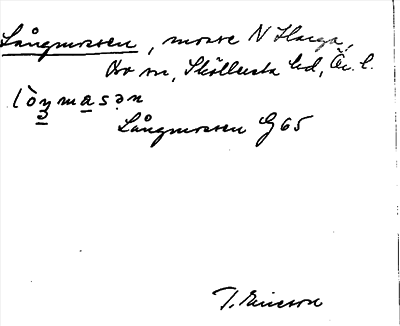 Långmossen, mosse N Harga,
Ov sn, Sköllersta hd, Ör. l.
lòŋmasən
Långmossen G 65
T. Ericson